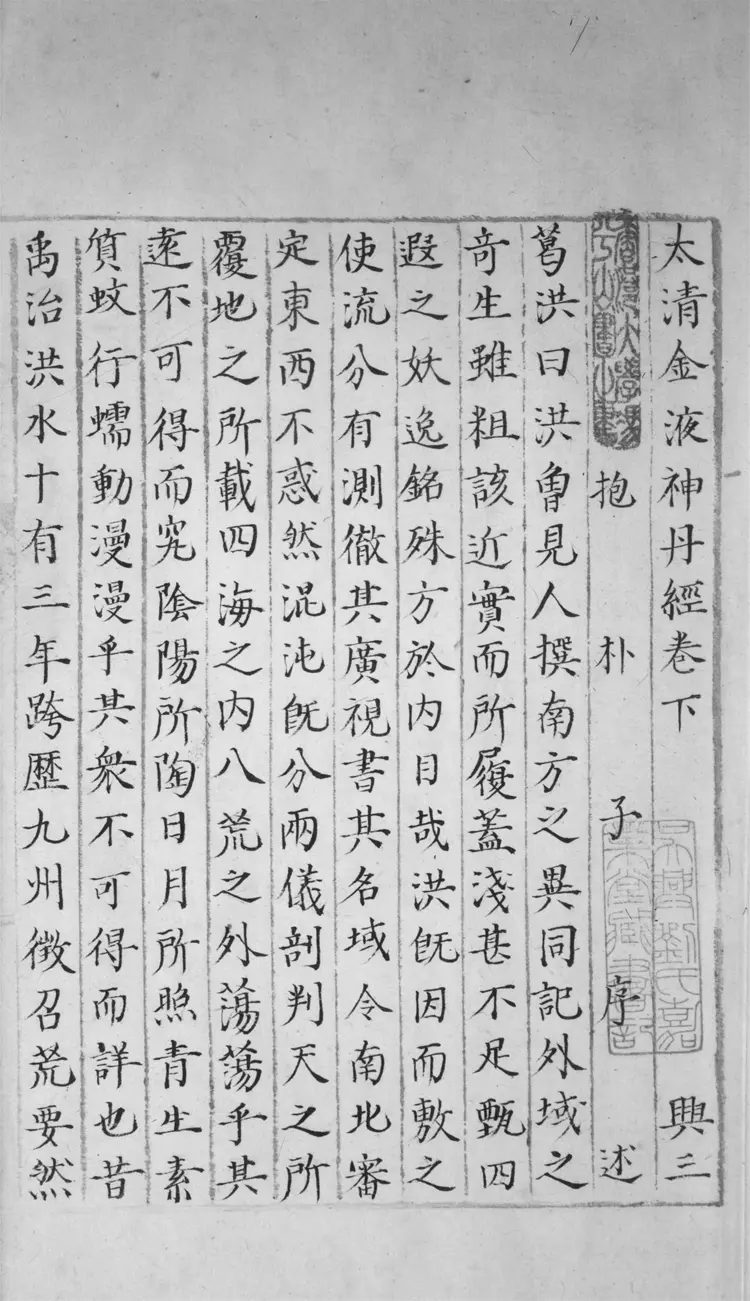 太清金液神丹經卷下 興三
抱朴子序述
葛洪曰洪曾見人撰南方之異同記外域之
奇生雖粗該近實而所履蓋淺甚不足甄四
遐之妖逸銘殊方於內目哉洪旣因而敷之
使流分有測徹其廣視書其名域令南北審
定東西不惑然混沌旣分兩儀剖判天之所
覆地之所載四海之內八荒之外蕩蕩乎其
遠不可得而究陰陽所陶日月所照青生素
質蚑行蠕動漫漫乎其衆不可得而詳也昔
禹治洪水十有三年跨歷九州徵召荒要然
吳興劉氏嘉
業堂藏書印